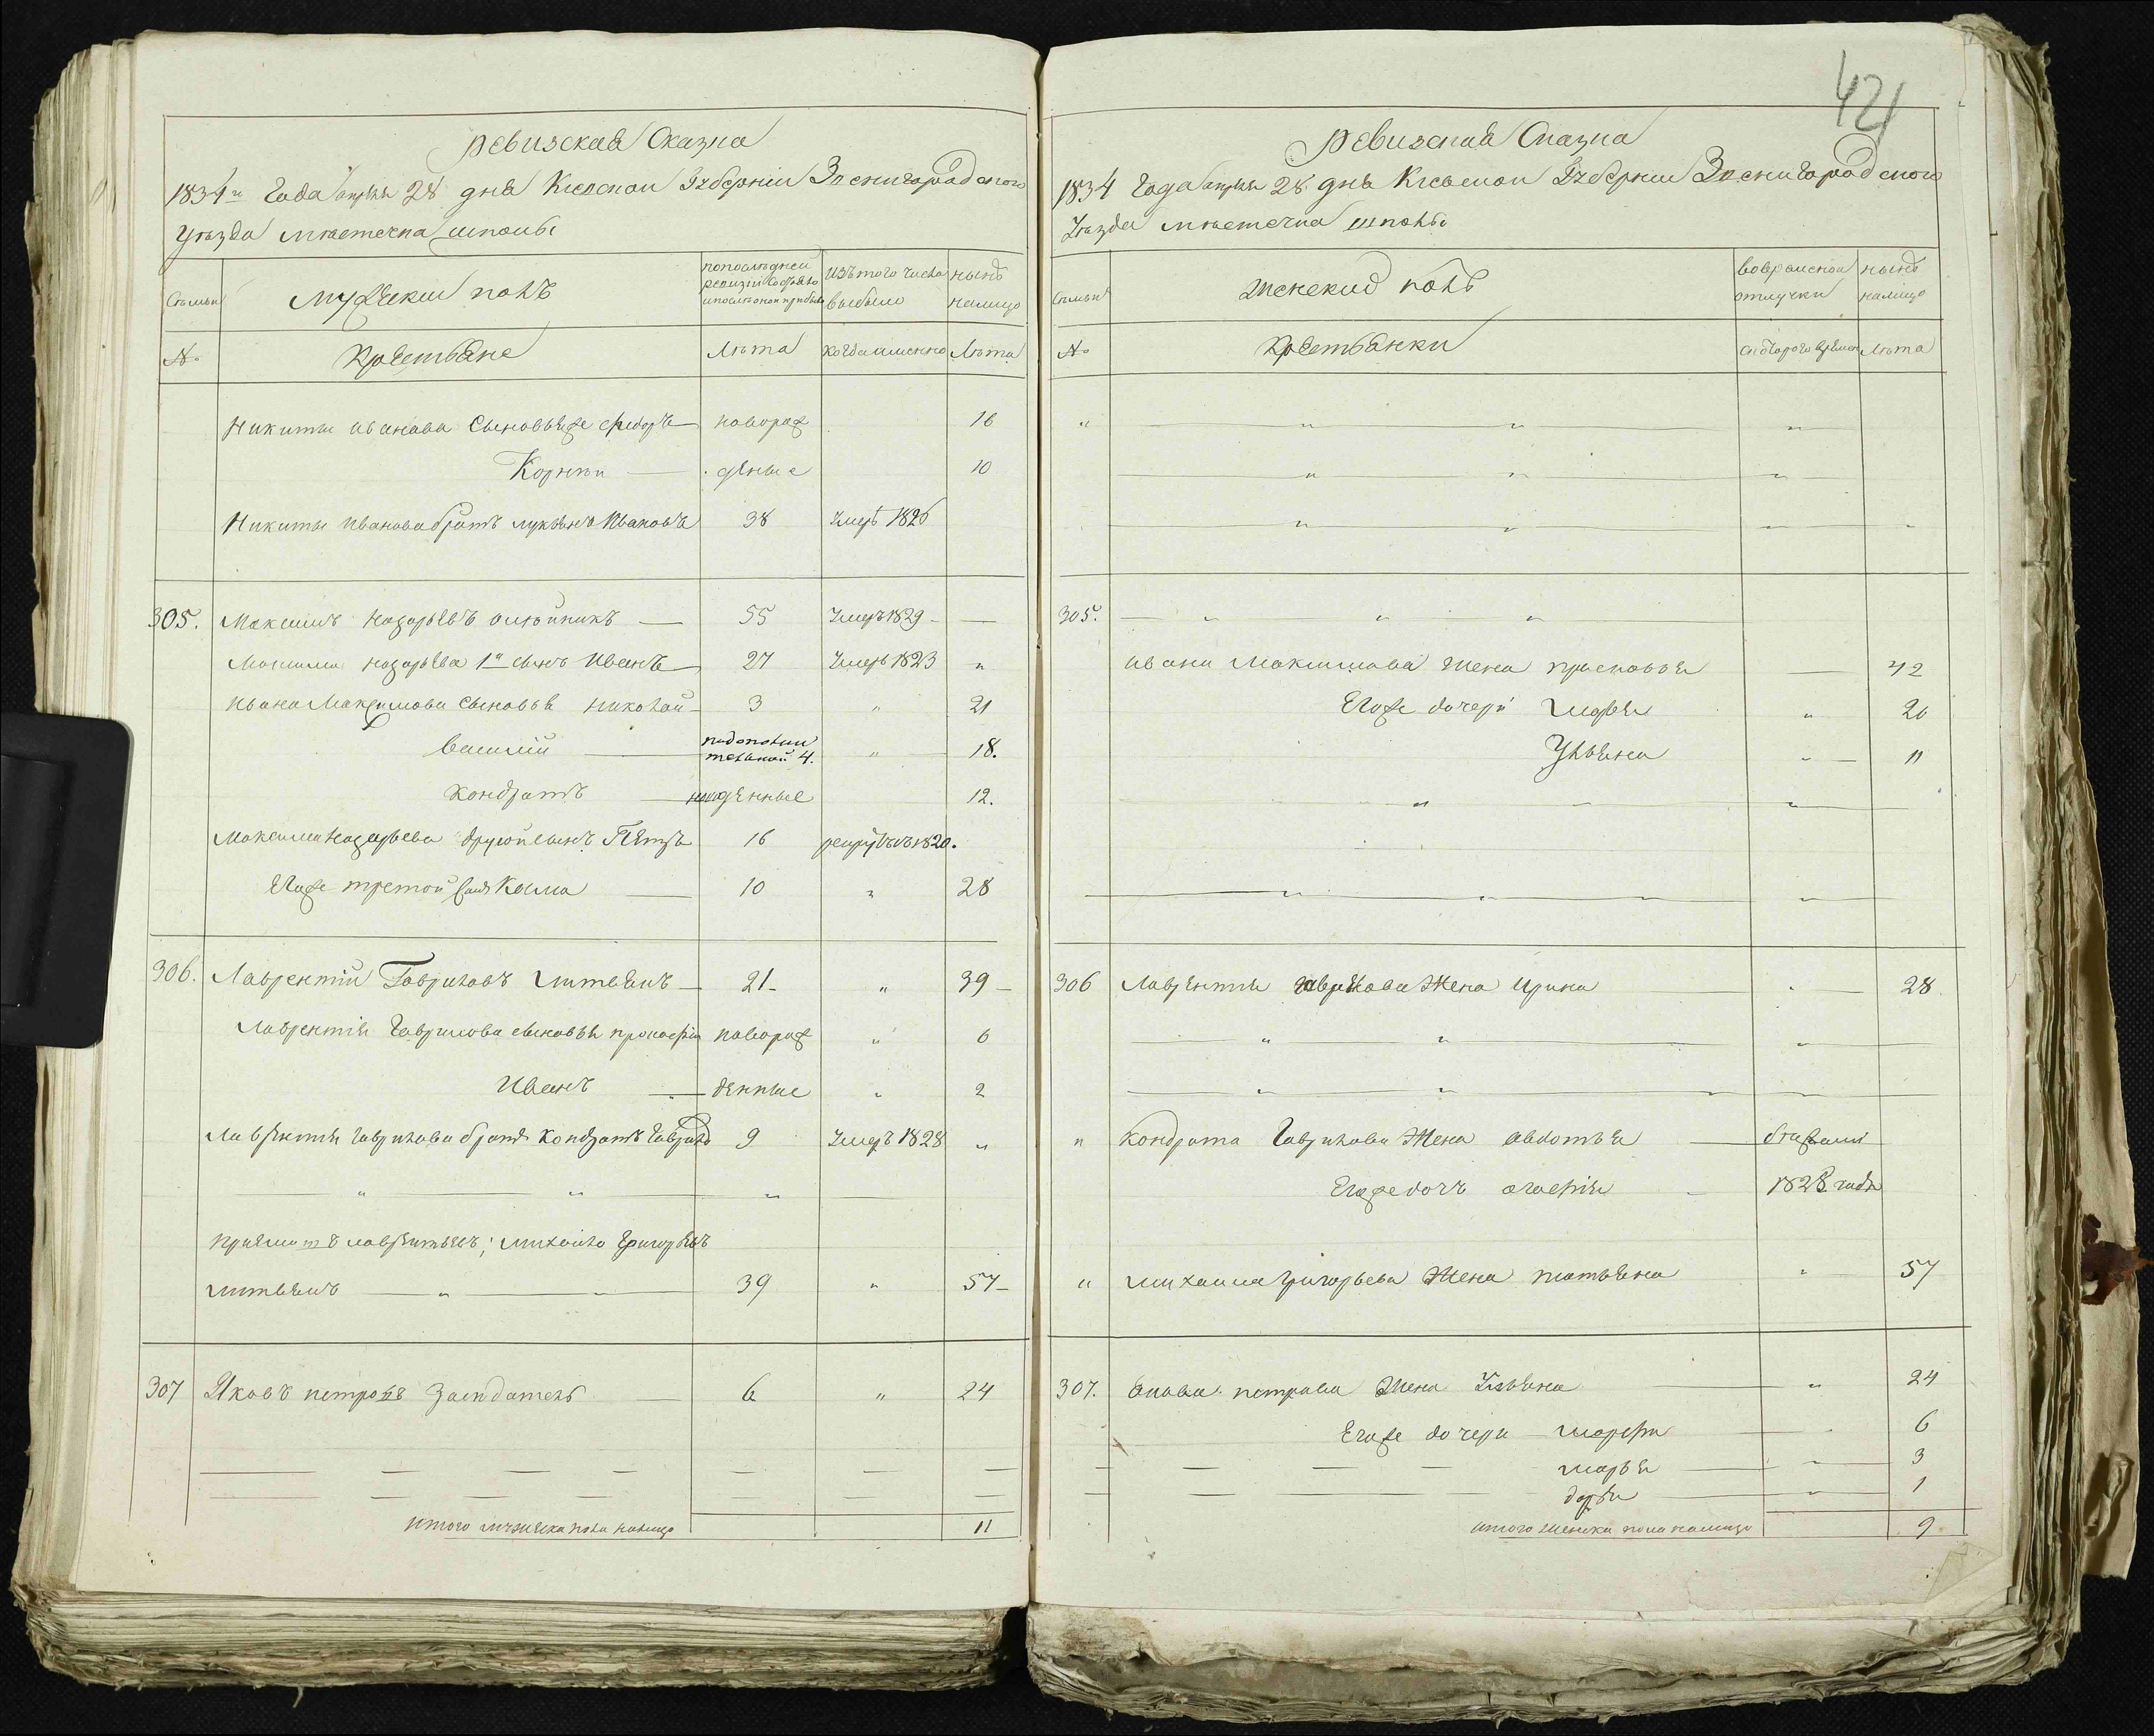 421
Ревизская Сказка
1834 года апреля 28 дня Киевской Губернiи Звенигородского
Уѣзда мѣстечка шполы
Семьи
Мужеский полъ
по последней ревизiи состояло и после оной прибыло
Изъ того числа выбыло
нынѣ налицо
№
Крестьяне
Лѣта
когда именно
Лѣта
Никиты иванова Сыновья его же федоръ — новорож 16
Корнѣй — денные 10
Никиты Иванова братъ лукьянъ Ивановъ 38 Умеръ 1826
305. Максимъ назарьевъ олѣйникъ — 55 Умеръ 1829 —
Максима назарьева 1й сынъ Иванъ 27 Умеръ 1823 "
Ивана Максимова Сыновья николай 3 " 21
василiй — 4. " 18.
Кондратъ — денные 12.
Максима Назарьева другой сынъ Петръ 16 рекрутъ въ 1820.
Егоже третой сынъ Козма — 10 " 28
306. Лаврентiй Гавриловъ литвинъ — 21 " 39
Лаврентiя Гаврилова сыновья прокофiй новорож " 6
Иванъ — денные " 2
Лаврентiя гаврилова братъ кондратъ Гаврило 9 Умеръ 1828 "
приимотъ лаврентьевъ, михайло Григорьевъ
литвинъ — 39 " 57
307 Яковъ петровъ Заендатель — 6 " 24
итого мужеска пола налицо 11
Ревизская Сказка
1834 Года апреля 28 дня Киевской Губернiи Звенигородского
Уѣзда мѣстечка шполы
Семьи
женский полъ
во временной отлучки
нынѣ налицо
№
Крестьянки
съ которого времени
Лѣта
305.
ивана Максимова жена прасковья — 42
Егоже дочери марья " 20
Ульяна " 11
306 Лаврентия гаврилова Жена Ирина " 28
" Кондрата Гаврилова Жена авдотья — бежали
Егоже дочь агафiя — 1828 года
" михаила григорьева Жена татьяна " 57
307. Якова петрова Жена Ульяна " 24
Егоже дочери марфа 6
марья " 3
дарья " 1
итого женска пола налицо 9